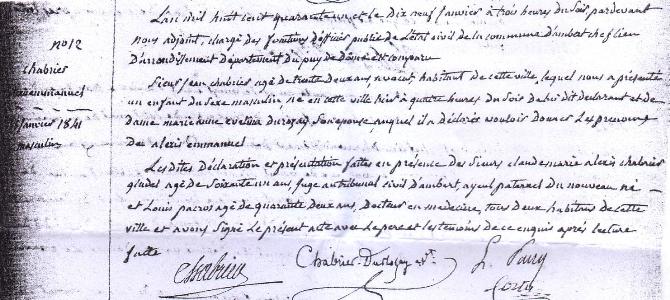 L'an mil huit cent quarante un et le dix neuf janvier à trois heures du soir pardevant
nous adjoint, chargé des fonctions d'officier public de l'état civil de la commune d'ambert chef lieu
d'arrondissement département du puy de dôme est comparu
no 12
Sieur jean chabrier agé de trente deux ans avocat habitant de cette ville, lequel nous a présenté
chabrier
un enfant du sexe masculin, né en cette ville hier à quatre heures du soir de lui dit déclarant et de
emmanuel
dame marie anne durozay son epouse auquel il a déclaré vouloir donner les prenoms
janvier 1841
des alexis emmanuel
masculin
Les dites déclaration et présentation faites en présence des sieurs claude marie alexis chabrier
agé de soixante un ans, juge au tribunal civil d'ambert ayeul paternel du nouveau né —
et Louis pacros agé de quarante deux ans, docteur en médecine, tous deux habitans de cette
ville et avons signé le présent acte avec le pere et les temoins de ce enquis après lecture
faite
Chabrier Chabrier-Durozay